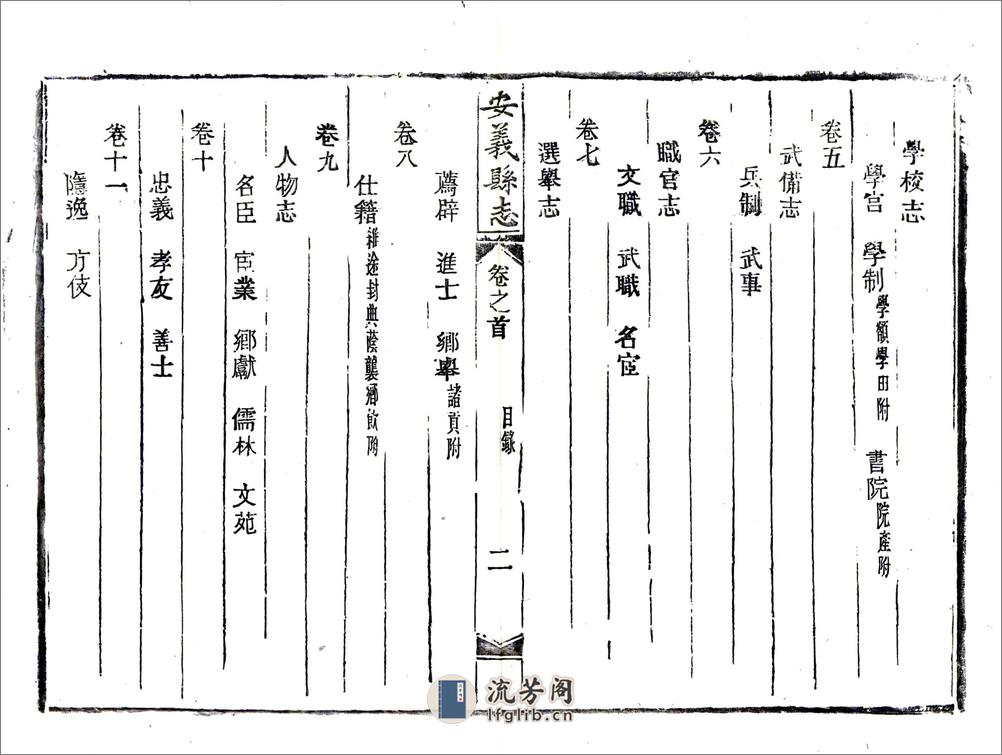 學校志
學宫　學制學額學田附　書院院產附
卷五
武備志
兵制　武事
卷六
職官志
文職　武職　名宦
卷七
選舉志
安義縣志　卷之首　目錄　二
薦辟　進士　鄉舉諸貢附
卷八
仕籍雜途封典蔭襲鄉飲附
卷九
人物志
名臣　宦業　鄉獻　儒林　文苑
卷十
忠義　孝友　善士
卷十一
隱逸　方伎
流芳阁
lfglib.cn